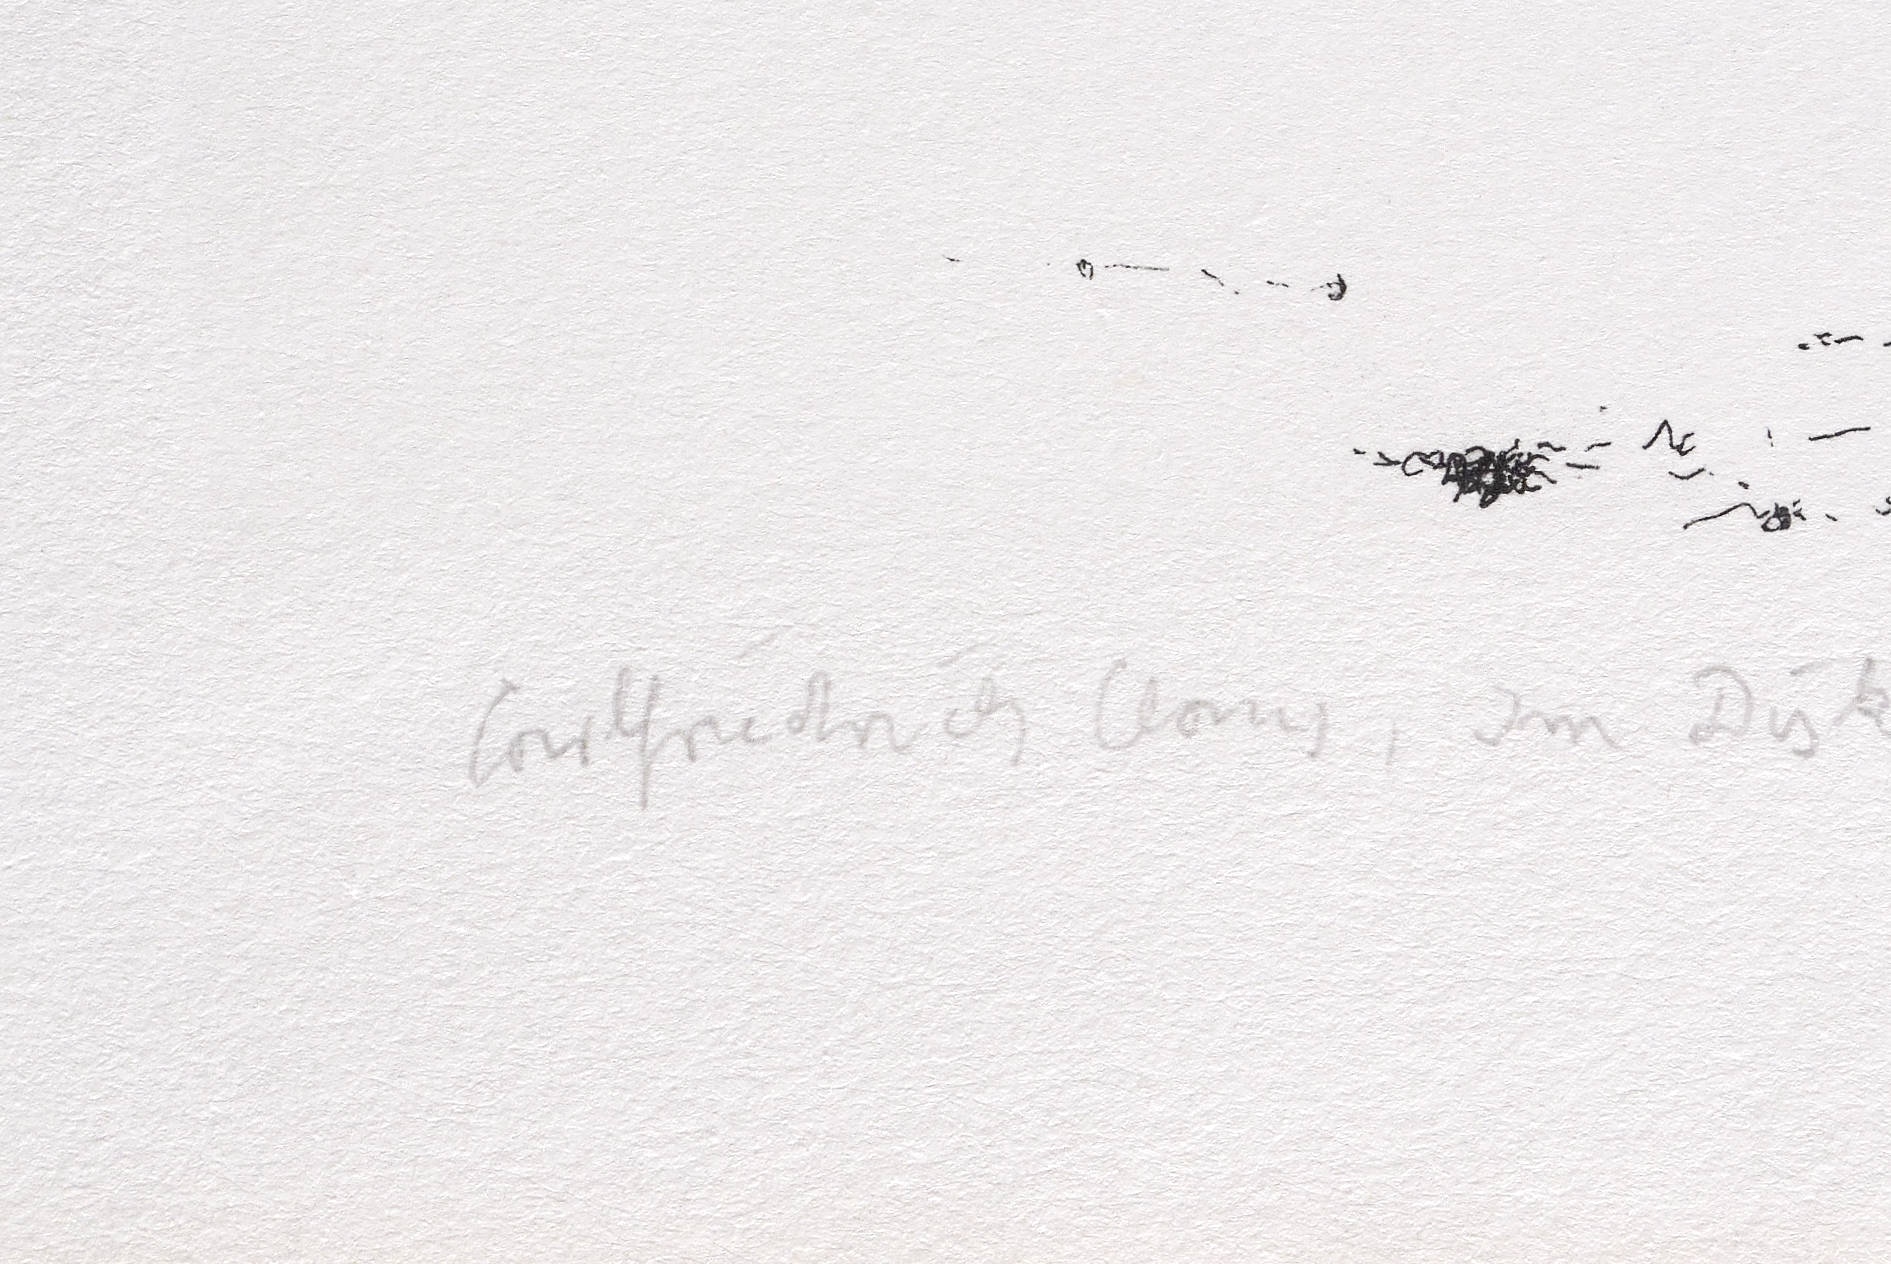 Carlfriedrich Claus, Im Disk